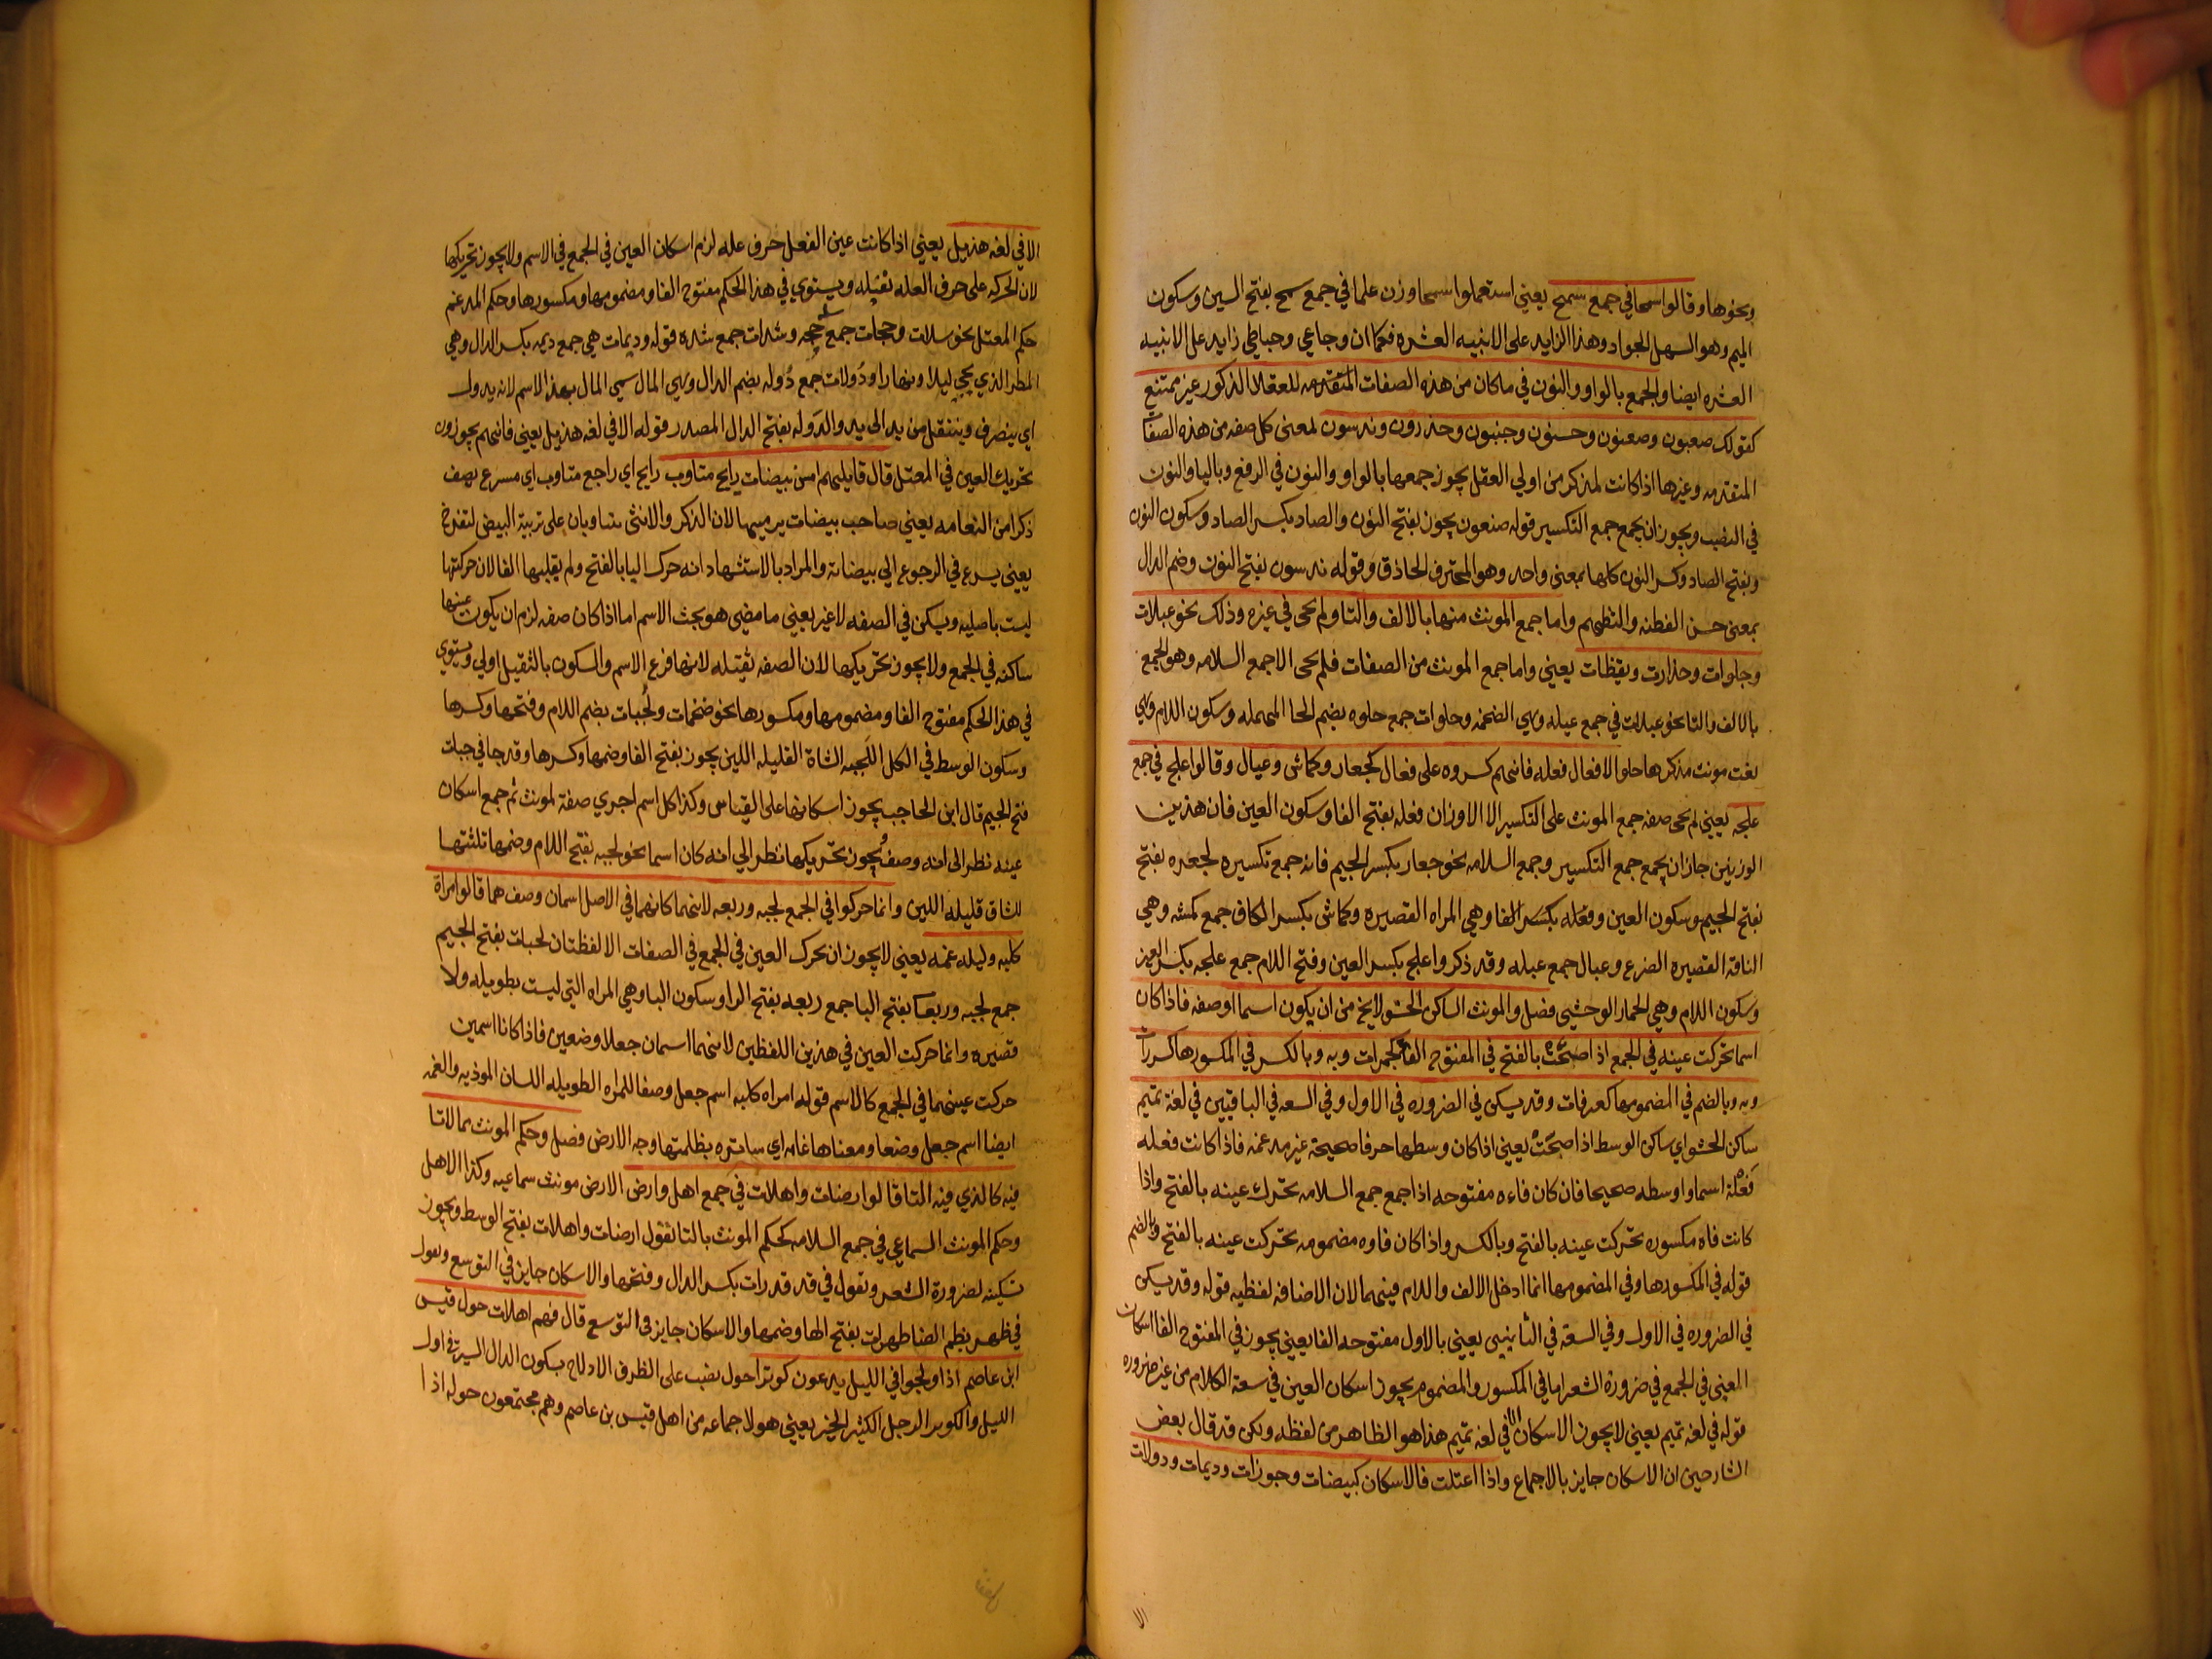 ونحوها وقالوا سمحا في جمع سمح يعني استعملوا سمحا وزن علما في جمع سمح بفتح السين وسكون
الميم وهو السهل الجواد وهذا الزايد على الابنيه العشره فكما ان وجاعي وحباطي زايد على الابنيه
العشره ايضا والجمع بالواو والنون في ما كان من هذه الصفات المتقدمه للعقلا الذكور غير ممتنع
كقولك صعبون وصنعون وحسنون وجنبون وحذرون وندسون لمعنى كل صفه من هذه الصفات
المتقدمه وغيرها اذا كانت لمذكر من اولي العقل يجوز جمعها بالواو والنون في الرفع وباليا والنون
في النصب ويجوز ان يجمع جمع التكسير قوله صنعون يجوز بفتح النون والصاد بكسر الصاد وسكون النون
وبفتح الصاد وكسر النون كلها بمعنى واحد وهو المحترف الحاذق وقوله ندسون بفتح النون وضم الدال
بمعنى حسن الفطنه والتفهم واما جمع المونث منها بالالف والتا ولم يجى في غيره وذلك نحو عبلات
وحلوات وحذارت ويقظات يعني واما جمع المونث من الصفات فلم يجى الا جمع السلامه وهو الجمع
بالالف والتا نحو عبلات في جمع عبله وهي الضخمه وحلوات جمع حلوه بضم الحا المهمله وسكون اللام وهي
نعت مونث مذكرها حلو الا فعال فعله فانهم كسروه على فعال كجعار وكماش وعبال وقالوا علج في جمع
علجه يعني لم يجى صفه جمع المونث على التكسير الا الاوزان فعله بفتح الفا وسكون العين فان هذين
الوزنين جاز ان يجمع جمع التكسير وجمع السلامه نحو جعار بكسر الجيم فانه جمع تكسيره لجعره بفتح
بفتح الجيم وسكون العين وفعله بكسر الفا وهي المراه القصيره وكماش بكسر الكاف جمع كمشه وهي
الناقه القصيره الضرع وعبال جمع عبله وقد ذكروا علج بكسر العين وفتح اللام جمع علجه بكسر العين
وسكون اللام وهي الحمار الوحشي فصل والمونث الساكن الحشو لا يخ من ان يكون اسما او صفه فاذا كان
اسما تحركت عينه في الجمع اذا صحت بالفتح في المفتوح الفا كجمرات وبه وبالكسر في المكسورها كسدرات
وبه وبالضم في المضمومها كغرفات وقد يسكن في الضروره في الاول وفي السعه في الباقيين في لغة تميم
ساكن الحشو اي ساكن الوسط اذا صحت يعني اذا كان وسطها حرفا صحيحة غير مدغمه فاذا كانت فعله
فعلة اسما واوسطه صحيحا فان كان فاءه مفتوحه اذا جمع جمع السلامه تحرك عينه بالفتح واذا
كانت فاه مكسوره تحركت عينه بالفتح وبالكسر واذا كان فاوه مضمومه تحركت عينه بالفتح والضم
قوله في المكسورها وفي المضمومها انما ادخل الالف واللام فيهما لان الاضافه لفظيه قوله وقد يسكن
في الضروره في الاول وفي السعة في الثانيين يعني بالاول مفتوحه الفا يعني يجوز في المفتوح الفا اسكان
العين في الجمع في ضرورة الشعر اما في المكسور والمضموم يجوز اسكان العين في سعة الكلام من غير ضروره
قوله في لغه تميم يعني لا يجوز الاسكان الا في لغه تميم هذا هو الظاهر من لفظه ولكن قد قال بعض
الشارحين ان الاسكان جايز بالاجماع واذا اعتلت فالاسكان كبيضات وجوزات وديمات ودولات
الا
الا في لغه هذيل يعني اذا كانت عين الفعل حرف عله لزم اسكان العين في الجمع في الاسم ولا يجوز تحريكها
لان الحركه على حرف العله ثقيله ويستوي في هذا الحكم مفتوح الفا ومضمومها ومكسورها وحكم المدغم
حكم المعتل نحو سلات وحجات جمع حجه وشدات جمع شده قوله وديمات هي جمع ديمه بكسر الدال وهي
المطر الذي يجي ليلا ونهارا ودُولات جمع دُوله بضم الدال وهي المال سمي المال بهذا الاسم لانه يدول
اي يتصرف وينتقل من يد الى يد والدَوله بفتح الدال المصدر قوله الا في لغه هذيل يعني فانهم يجوزون
تحريك العين في المعتل قال قايلهم اسن بيضات رايح متاوب رايح اي راجع متاوب اي مسرع يصف
ذكرا من النعامه يعني صاحب بيضات يرميها لان الذكر والانثى يتناوبان على تربية البيض لتفرخ
يعني يسرع في الرجوع الي بيضاته والمراد بالاستشهاد انه حرك اليا بالفتح ولم يقلبها الفا لان حركتها
ليست باصليه ويسكن في الصفه لا غير يعني ما مضى هو بحث الاسم اما اذا كان صفه لزم ان يكون عينها
ساكنه في الجمع ولا يجوز تحريكها لان الصفه ثقيله لانها فرع الاسم والسكون بالثقيل اولي ويستوي
في هذا الحكم مفتوح الفا ومضمومها ومكسورها نحو ضخمات ولُجبات بضم اللام وفتحها وكسرها
وسكون الوسط في الكل اللجبه الشاة القليله اللبن يجوز بفتح الفا وضمها وكسرها وقد جا في جبات
فتح الجيم قال ابن الحاجب يجوز اسكانها على القياس وكذا كل اسم اجري صفة لمونث ثم جمع اسكان
عينه نظر الى انه وصف ويجوز تحريكها نظر الي انه كان اسما نحو لجبه بفتح اللام وضمها ثلثتها
للشاة قليله اللبن وانما حركوا في الجمع لجبه وربعه لانهما كانهما في الاصل اسمان وصف هما قالوا امراة
كلبه وليله غمه يعني لا يجوز ان تحرك العين في الجمع في الصفات الا لفظتان لجبات بفتح الجيم
جمع لجبه وربعات بفتح البا جمع ربعه بفتح الرا وسكون البا وهي المراه التي ليست بطويله ولا
قصيره وانما حركت العين في هذين اللفظين لانهما اسمان جعلا وضعين فاذا كانا اسمين
حركت عينهما في الجمع كالاسم قوله امراه كلبه اسم جعل وصفا للمراه الطويله اللسان الموذيه والغمه
ايضا اسم جعل وضعا ومعناها غامه اي ساتره بظلمتها وجه الارض فصل وحكم المونث مما لا تا
فيه كالذي فيه التا قالوا ارضات واهلات في جمع اهل وارض الارض مونث سماعيه وكذا الاهل
وحكم المونث السماعي في جمع السلامه كحكم المونث بالتا تقول ارضات واهلات بفتح الوسط ويجوز
تسكينه لضرورة الشعر وتقول في قدر قدرات بكسر الدال وفتحها والاسكان جايز في التوسع وتقول
في ظهر بظم الضا ظهرات بفتح الها وضمها والاسكان جايز في التوسع قال فهم اهلات حول قيس
ابن عاصم اذا ادلجوا في الليل يدعون كوثرا حول نصب على الظرف الادلاج بسكون الدال السير في اول
الليل والكوثر الرجل الكثير الخير يعني هولا جماعه من اهل قيس بن عاصم وهم مجتمعون حوله اذا